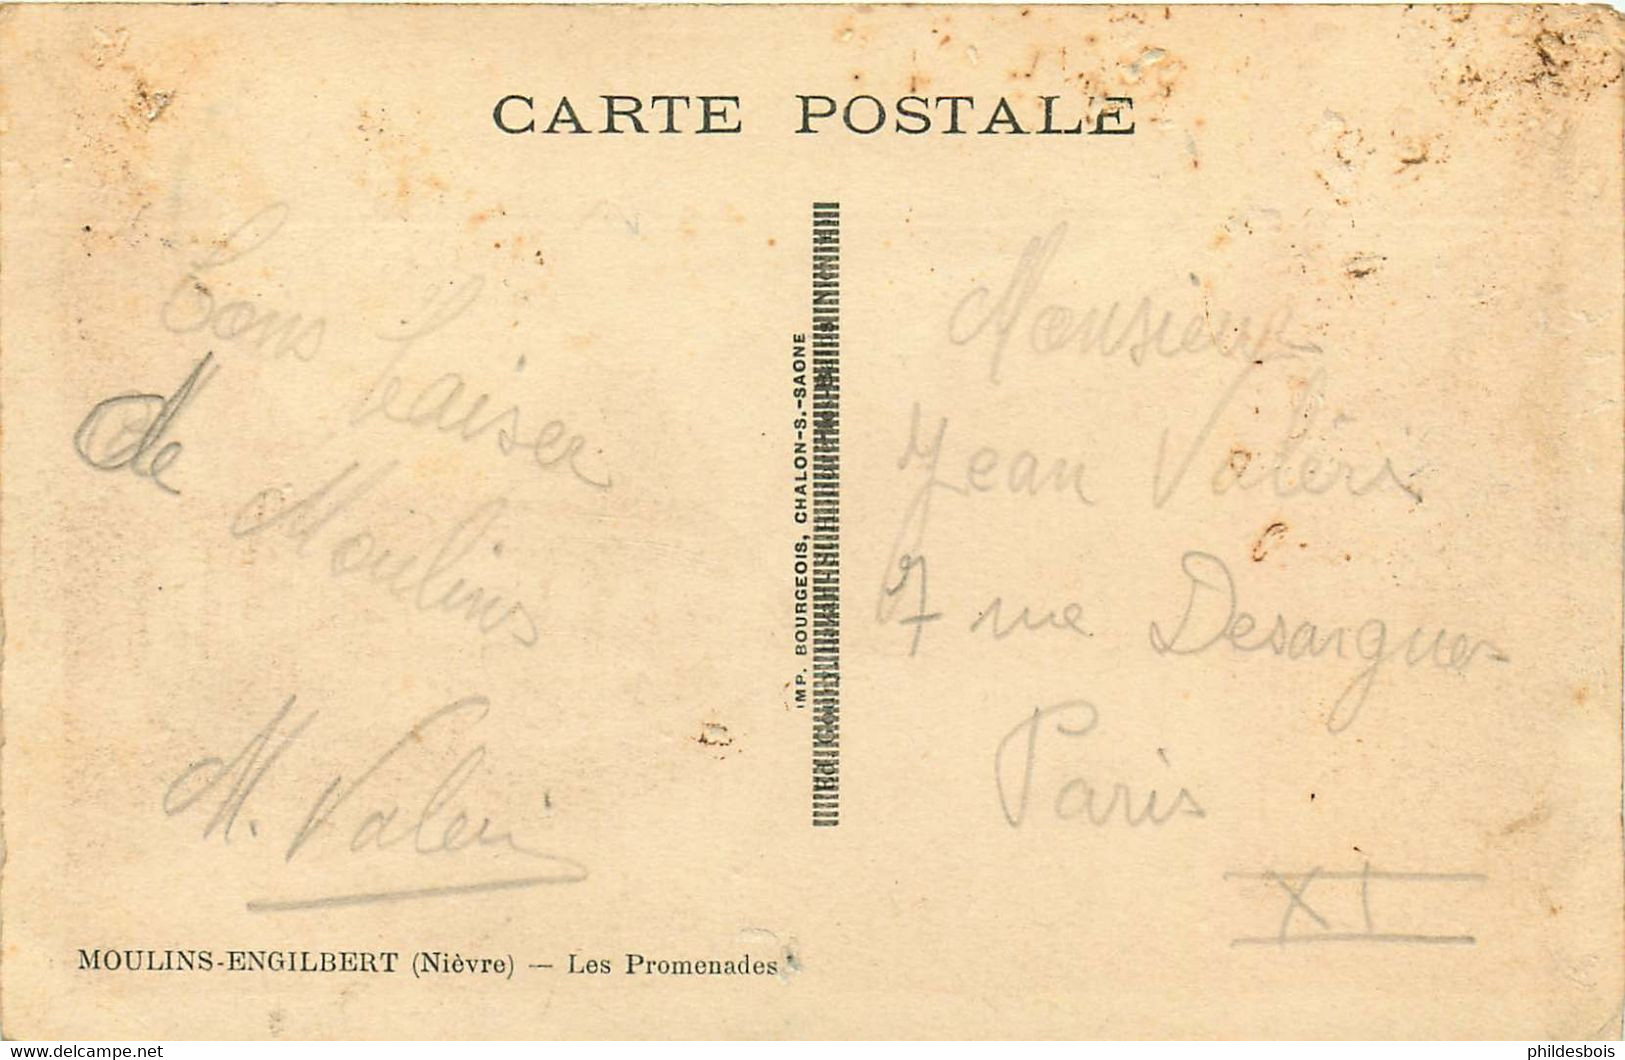 CARTE POSTALE
bons baiser
de Moulins
M. Valeri
MOULINS-ENGILBERT (Nièvre) — Les Promenades
IMP. BOURGEOIS, CHALON-S.-SAONE
Monsieur
Jean Valéri
7 rue Desargues
Paris
XI
delcampe.net
phildesbois